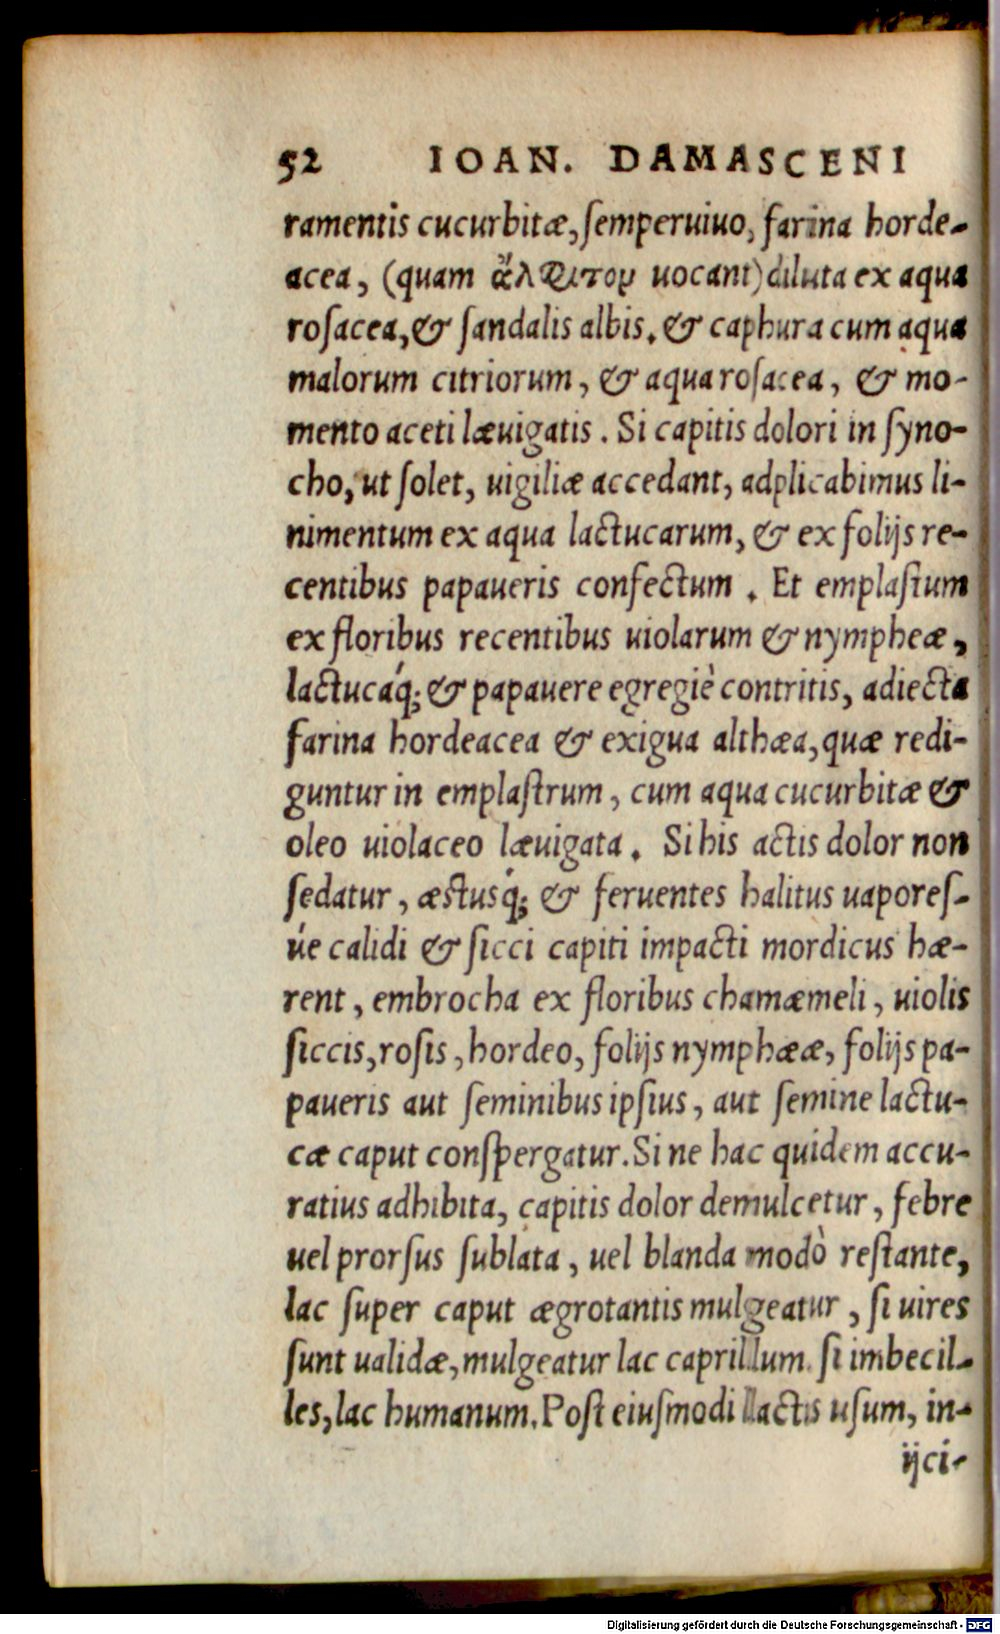 52 IOAN. DAMASCENI
ramentis cucurbitæ, ſemperuiuo, farina horde-
acea, (quam ἄλφιτον uocant) diluta ex aqua
roſacea, & ſandalis albis. & caphura cum aqua
malorum citriorum, & aqua roſacea, & mo-
mento aceti læuigatis. Si capitis dolori in ſyno-
cho, ut ſolet, uigiliæ accedant, adplicabimus li-
nimentum ex aqua lactucarum, & ex folijs re-
centibus papaueris confectum. Et emplaſtum
ex floribus recentibus uiolarum & nympheæ,
lactucáq; & papauere egregiè contritis, adiecta
farina hordeacea & exigua althæa, quæ redi-
guntur in emplaſtrum, cum aqua cucurbitæ &
oleo uiolaceo læuigata. Si his actis dolor non
ſedatur, æſtusq́; & feruentes halitus uaporeſ-
úe calidi & ſicci capiti impacti mordicus hæ-
rent, embrocha ex floribus chamæmeli, uiolis
ſiccis, roſis, hordeo, folijs nymphææ, folijs pa-
paueris aut ſeminibus ipſius, aut ſemine lactu-
cæ caput conſpergatur. Si ne hac quidem accu-
ratius adhibita, capitis dolor demulcetur, febre
uel prorſus ſublata, uel blanda modò reſtante,
lac ſuper caput ægrotantis mulgeatur, ſi uires
ſunt ualidæ, mulgeatur lac caprillum. ſi imbecil-
les, lac humanum. Poſt eiuſmodi lactis uſum, in-
ijci-
Digitalisierung gefördert durch die Deutsche Forschungsgemeinschaft - DFG